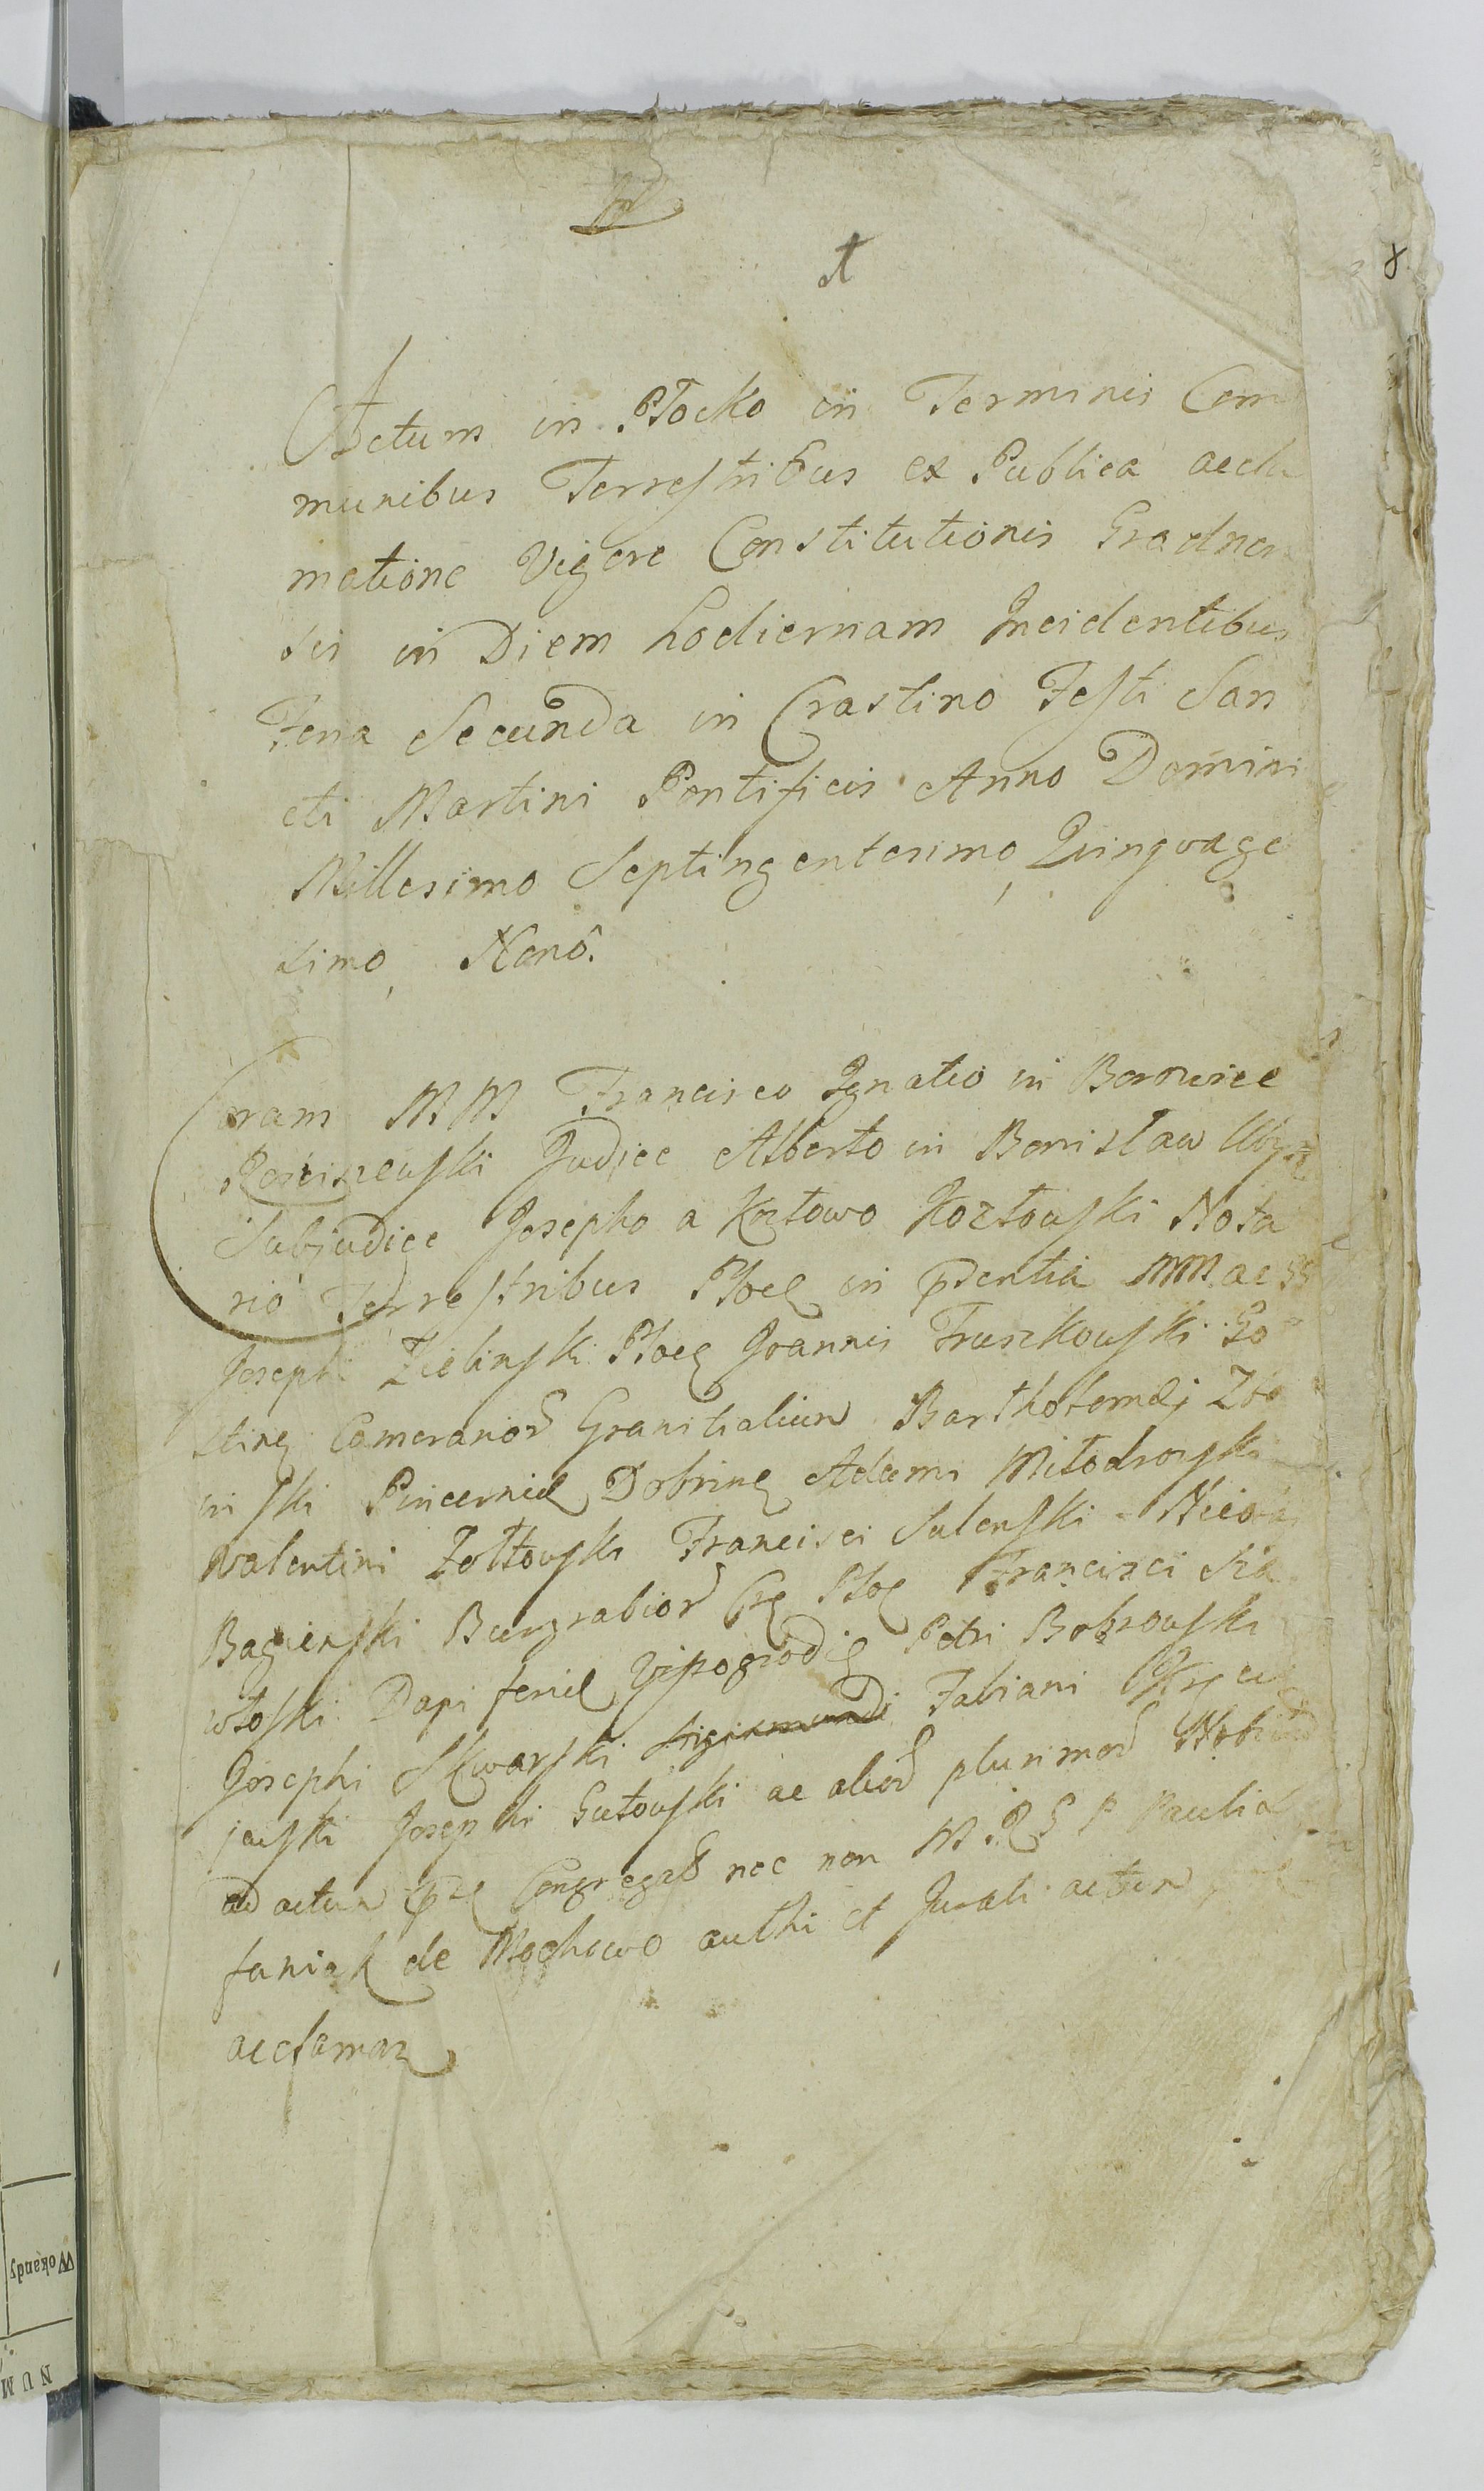 8
A
Actum in Płocko in Terminis Com
munibus Terrestribus ex Publica accla
matione Vigore Constitutionis Grodnen
sis in Diem hodiernam Incidentibus
Feria Secunda in Crastino Festi San
cti Martini Pontificis Anno Domini
Millesimo Septingentesimo Quinquage
simo Nono.
Coram MM Francisco Ignatio in Borowice
Rosciszewski Judice Alberto in Borisław
Subjudice Josepho a Kozłowo Kozłowski Nota
rio Terrestribus Płoc in pntia MM ac GG
Josephi Zielinski Płoc Joannis Truszkowski Go
stin Camerarior Granitialium Bartholomæj Zbo
inski Pincernæ Dobrin Adami Miłodrowski
Valentini Zołtowski Francisci Sulenski
Bagienski Burgrabior Płoc Francisci Sza
włoski Dapiferiæ Wyszogrod Petri Bobrowski
Josephi Skwarski Sigismundi Fabiani
jewski Josephi Gutowski ac alior plurimor Nobiliū
ad actum Congregat nec non M Pauli
faniak de Mochowo authi et Jurati actum
acclamaz
Wokandy
NUM